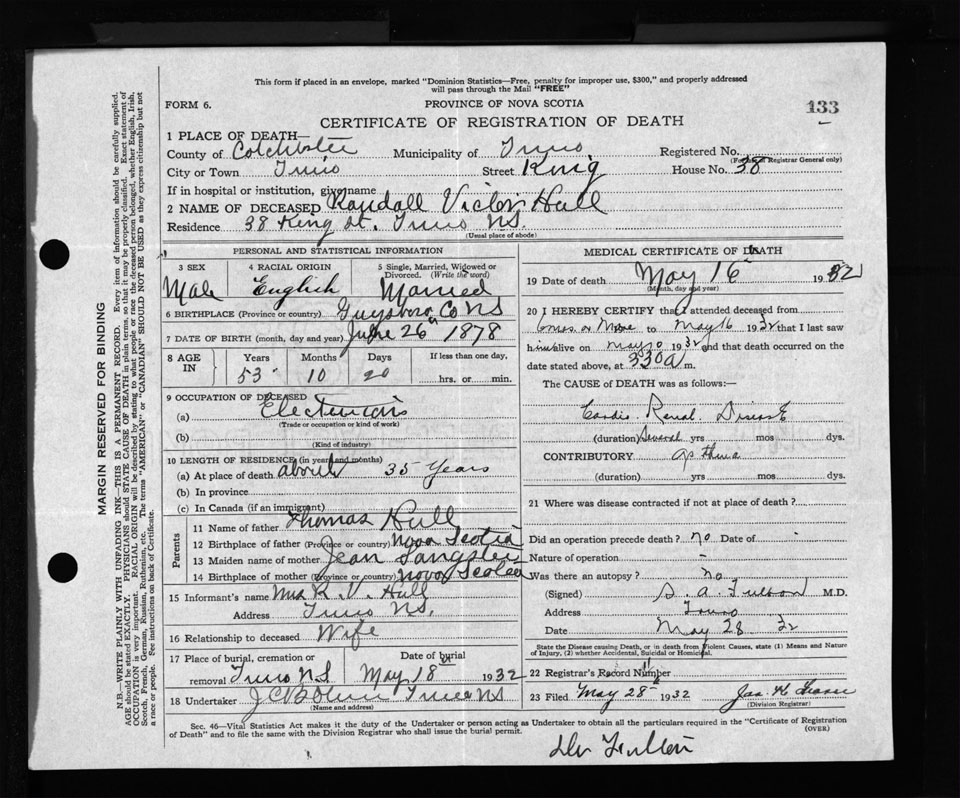 This form if placed in an envelope, marked "Dominion Statistics—Free, penalty for improper use, $300," and properly addressed
will pass through the Mail "FREE"
FORM 6. PROVINCE OF NOVA SCOTIA 133
CERTIFICATE OF REGISTRATION OF DEATH
1 PLACE OF DEATH—
County of Colchester Municipality of Truro Registered No.
(For use of Registrar General only)
City or Town Truro Street King House No. 38
If in hospital or institution, give name
2 NAME OF DECEASED Randall Victor Hull
Residence 38 King St. Truro N.S.
(Usual place of abode)
PERSONAL AND STATISTICAL INFORMATION
3 SEX 4 RACIAL ORIGIN 5 Single, Married, Widowed or
Divorced. (Write the word)
Male English Married
6 BIRTHPLACE (Province or country) Guysboro Co NS
7 DATE OF BIRTH (month, day and year) June 26th 1878
8 AGE IN Years Months Days If less than one day,
53 10 20 hrs. or min.
9 OCCUPATION OF DECEASED
(a) Electrician
(Trade or occupation or kind of work)
(b)
(Kind of industry)
10 LENGTH OF RESIDENCE (in years and months)
(a) At place of death about 35 Years
(b) In province
(c) In Canada (if an immigrant)
Parents
11 Name of father Thomas Hull
12 Birthplace of father (Province or country) Nova Scotia
13 Maiden name of mother Jean Langster
14 Birthplace of mother (Province or country) Nova Scotia
15 Informant's name Mrs R. V. Hull
Address Truro NS.
16 Relationship to deceased Wife
17 Place of burial, cremation or Date of burial
removal Truro N.S. May 18th 1932
18 Undertaker Truro NS
(Name and address)
MEDICAL CERTIFICATE OF DEATH
19 Date of death May 16th 1932
(Month, day and year)
20 I HEREBY CERTIFY that I attended deceased from
to May 16 1932 that I last saw
him alive on May 1932 and that death occurred on the
date stated above, at 330 a m.
The CAUSE of DEATH was as follows:—
Cardio Renal Disease
(duration) Several yrs mos dys.
CONTRIBUTORY
(duration) yrs mos dys.
21 Where was disease contracted if not at place of death?
Did an operation precede death? no Date of
Nature of operation
Was there an autopsy? no
(Signed) S. A. Fulton M.D.
Address Truro
Date May 28 32
State the Disease causing Death, or in death from Violent Causes, state (1) Means and Nature
of Injury, (2) whether Accidental, Suicidal or Homicidal.
22 Registrar's Record Number
23 Filed May 28th 1932 Jas. H.
(Division Registrar)
Sec. 46—Vital Statistics Act makes it the duty of the Undertaker or person acting as Undertaker to obtain all the particulars required in the "Certificate of Registration
of Death" and to file the same with the Division Registrar who shall issue the burial permit. (OVER)
Dr Fulton
MARGIN RESERVED FOR BINDING
N.B.—WRITE PLAINLY WITH UNFADING INK—THIS IS A PERMANENT RECORD. Every item of information should be carefully supplied.
AGE should be stated EXACTLY. PHYSICIANS should STATE CAUSE OF DEATH in plain terms, so that it may be properly classified. Exact statement of
OCCUPATION is very important. RACIAL ORIGIN will be described by stating to what people or race the deceased person belonged, whether English, Irish,
Scotch, French, German, Russian, Ruthenian, etc. The terms "AMERICAN" or "CANADIAN" SHOULD NOT BE USED as they express citizenship but not
a race or people. See instructions on back of Certificate.